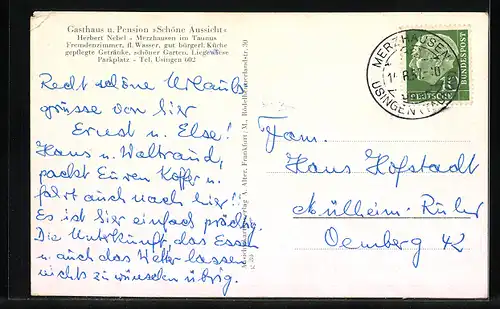 Gasthaus u. Pension »Schöne Aussicht«
Herbert Nebel - Merzhausen im Taunus
Fremdenzimmer, fl. Wasser, gut bürgerl. Küche
gepflegte Getränke, schöner Garten, Liegewiese
Parkplatz - Tel. Usingen 602
Recht schöne Urlaubs
grüsse von hier
Ernst u. Else!
Hans u. Waltraud,
packt Euren Koffer u.
fahrt auch nach hier!!
Es ist hier einfach prächtig.
Die Unterkunft, das Essen
u. auch das Wetter lassen
nichts zu wünschen übrig.
Frankfurt/M., Rödelheimerlandstr.
MERZHAUSEN
USINGEN (TAUNUS)
DEUTSCHE BUNDESPOST
Fam.
Hans Hofstadt
Mülheim-Ruhr
Oemberg 42